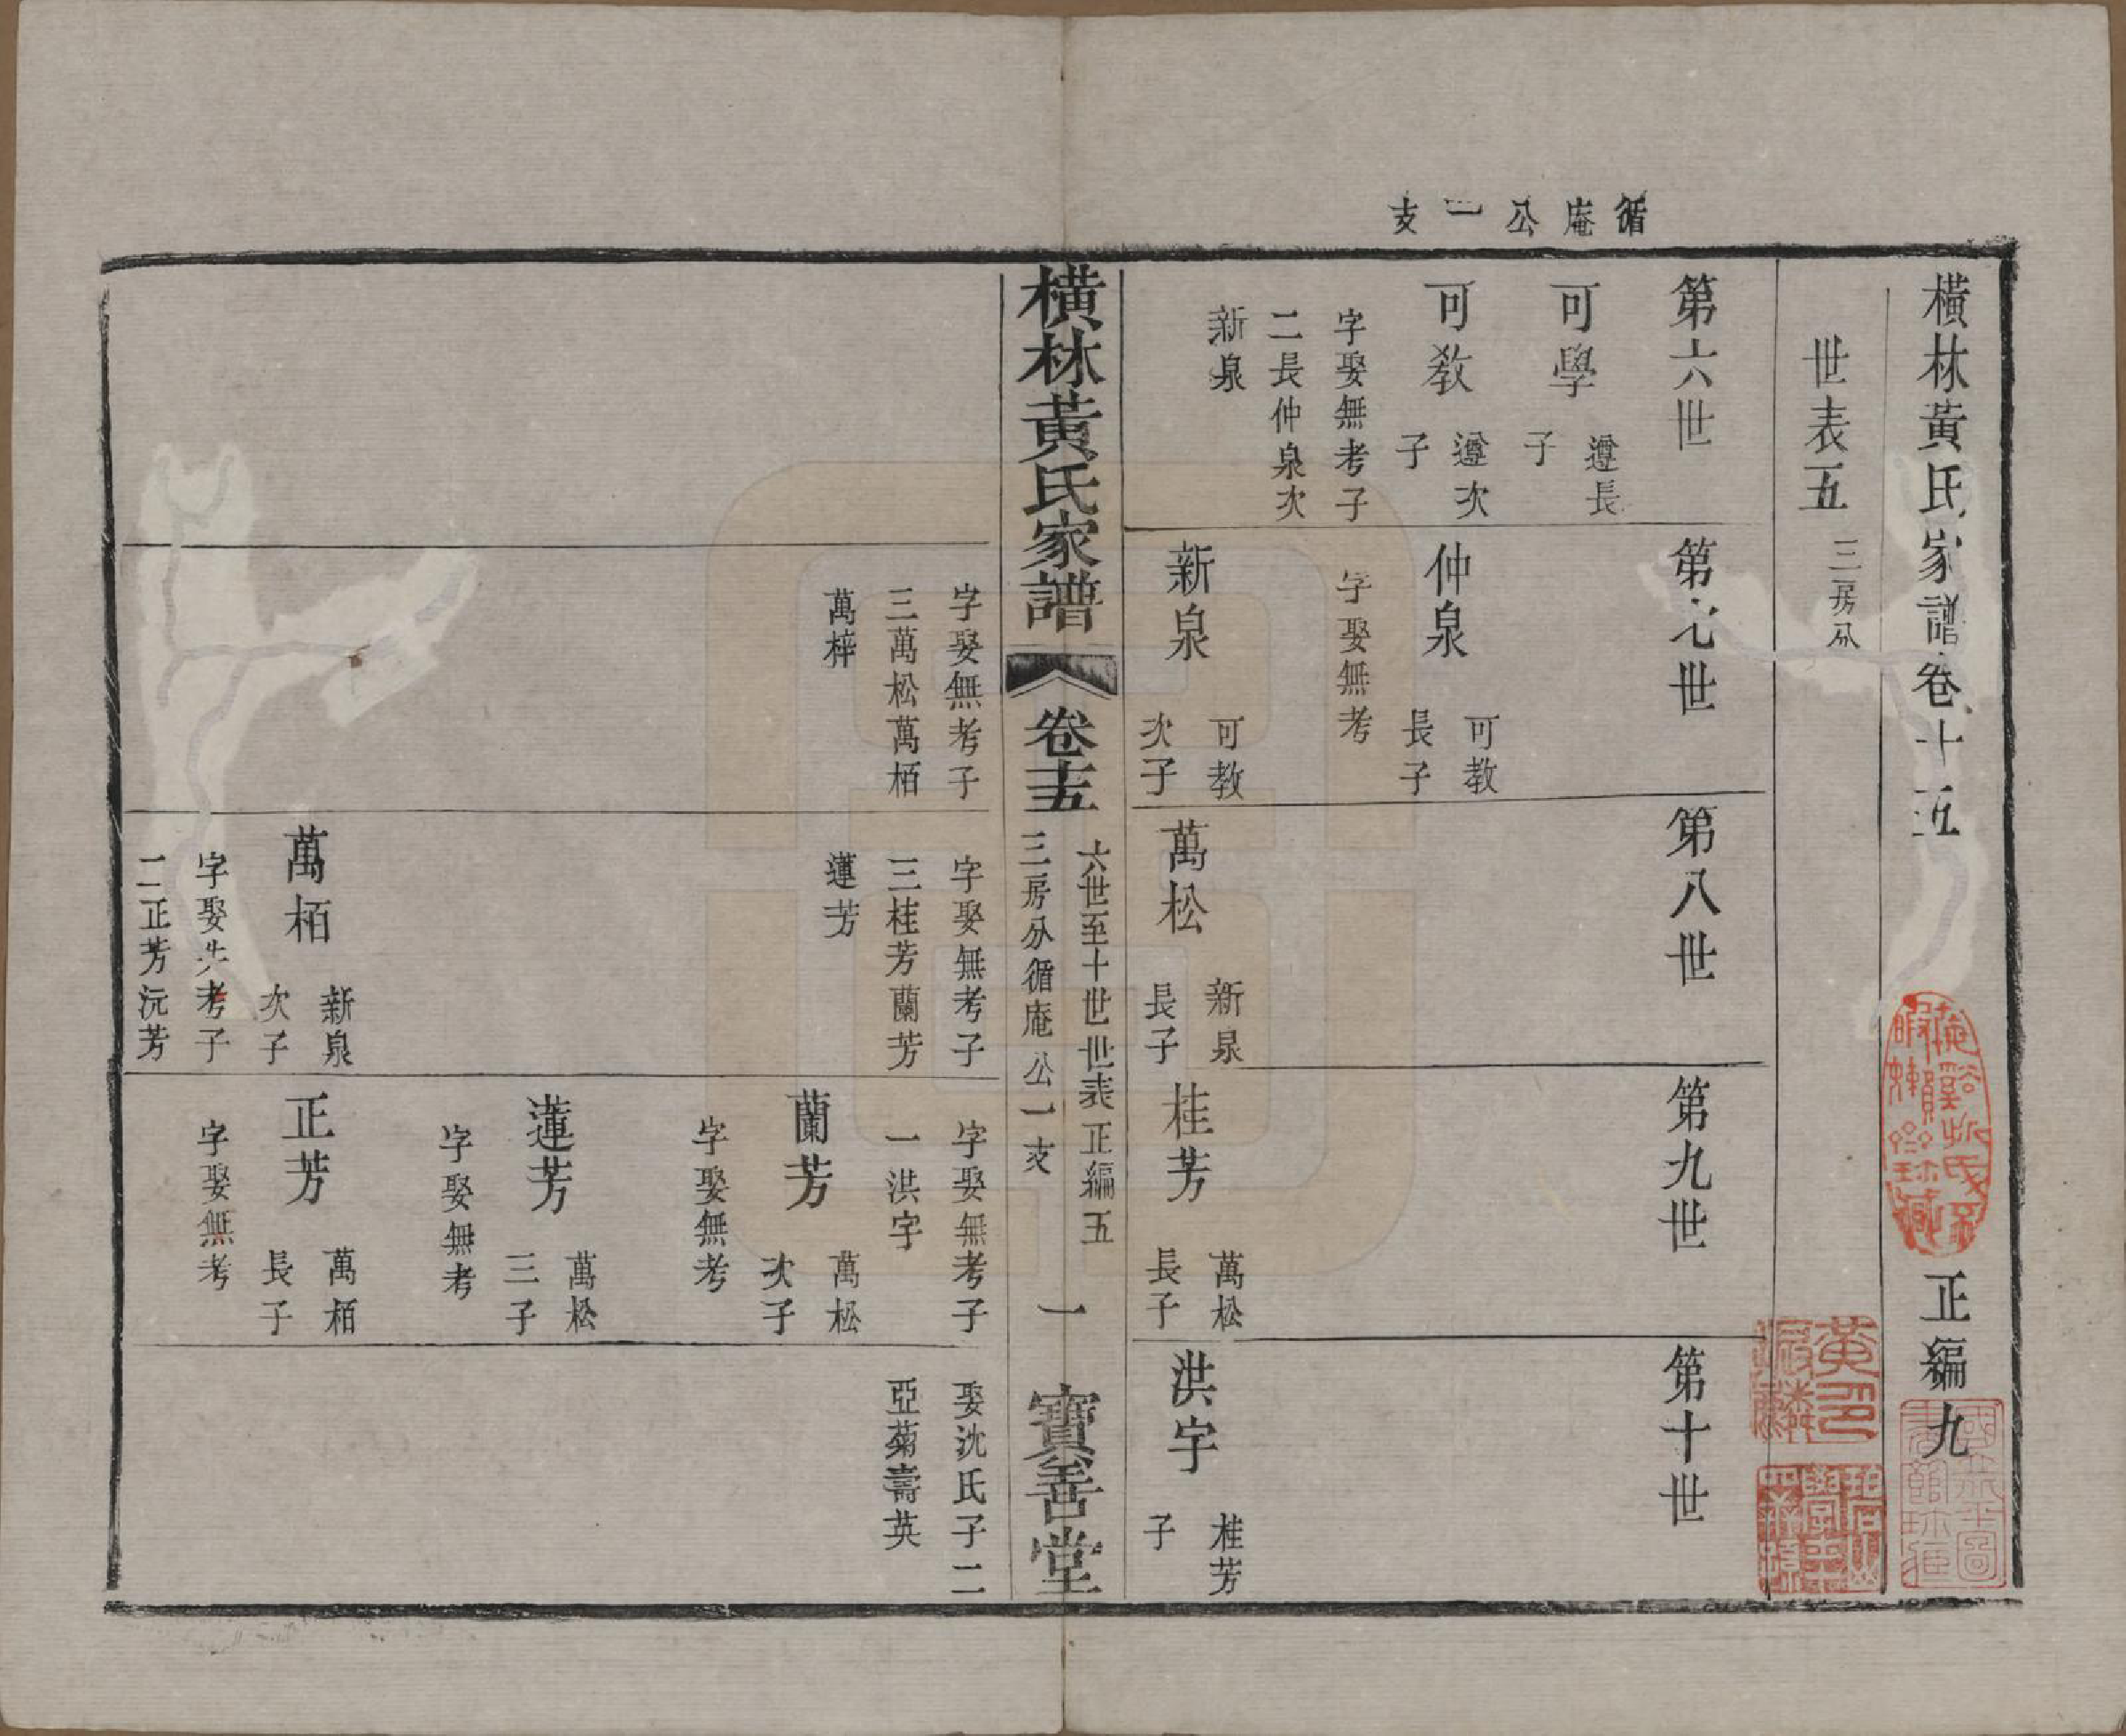 橫林黃氏家譜卷十五
正編九
世表五
三房分
循庵公一支
第六世
可學
遵長
子
可教
遵次
子
字娶無考子
二長仲泉次
新泉
第七世
仲泉
可教
長子
字娶無考
新泉
可教
次子
第八世
萬松
新泉
長子
第九世
桂芳
萬松
長子
第十世
洪宇
桂芳
子
橫林黃氏家譜
卷十五
六世至十世世表正編五
三房分循庵公一支
一
寶善堂
字娶無考子
三萬松萬栢
萬梓
字娶無考子
三桂芳蘭芳
蓮芳
萬栢
新泉
次子
字娶失考子
二正芳沅芳
字娶無考子
一洪宇
蘭芳
萬松
次子
字娶無考
蓮芳
萬松
三子
字娶無考
正芳
萬栢
長子
字娶無考
娶沈氏子二
亞菊壽英